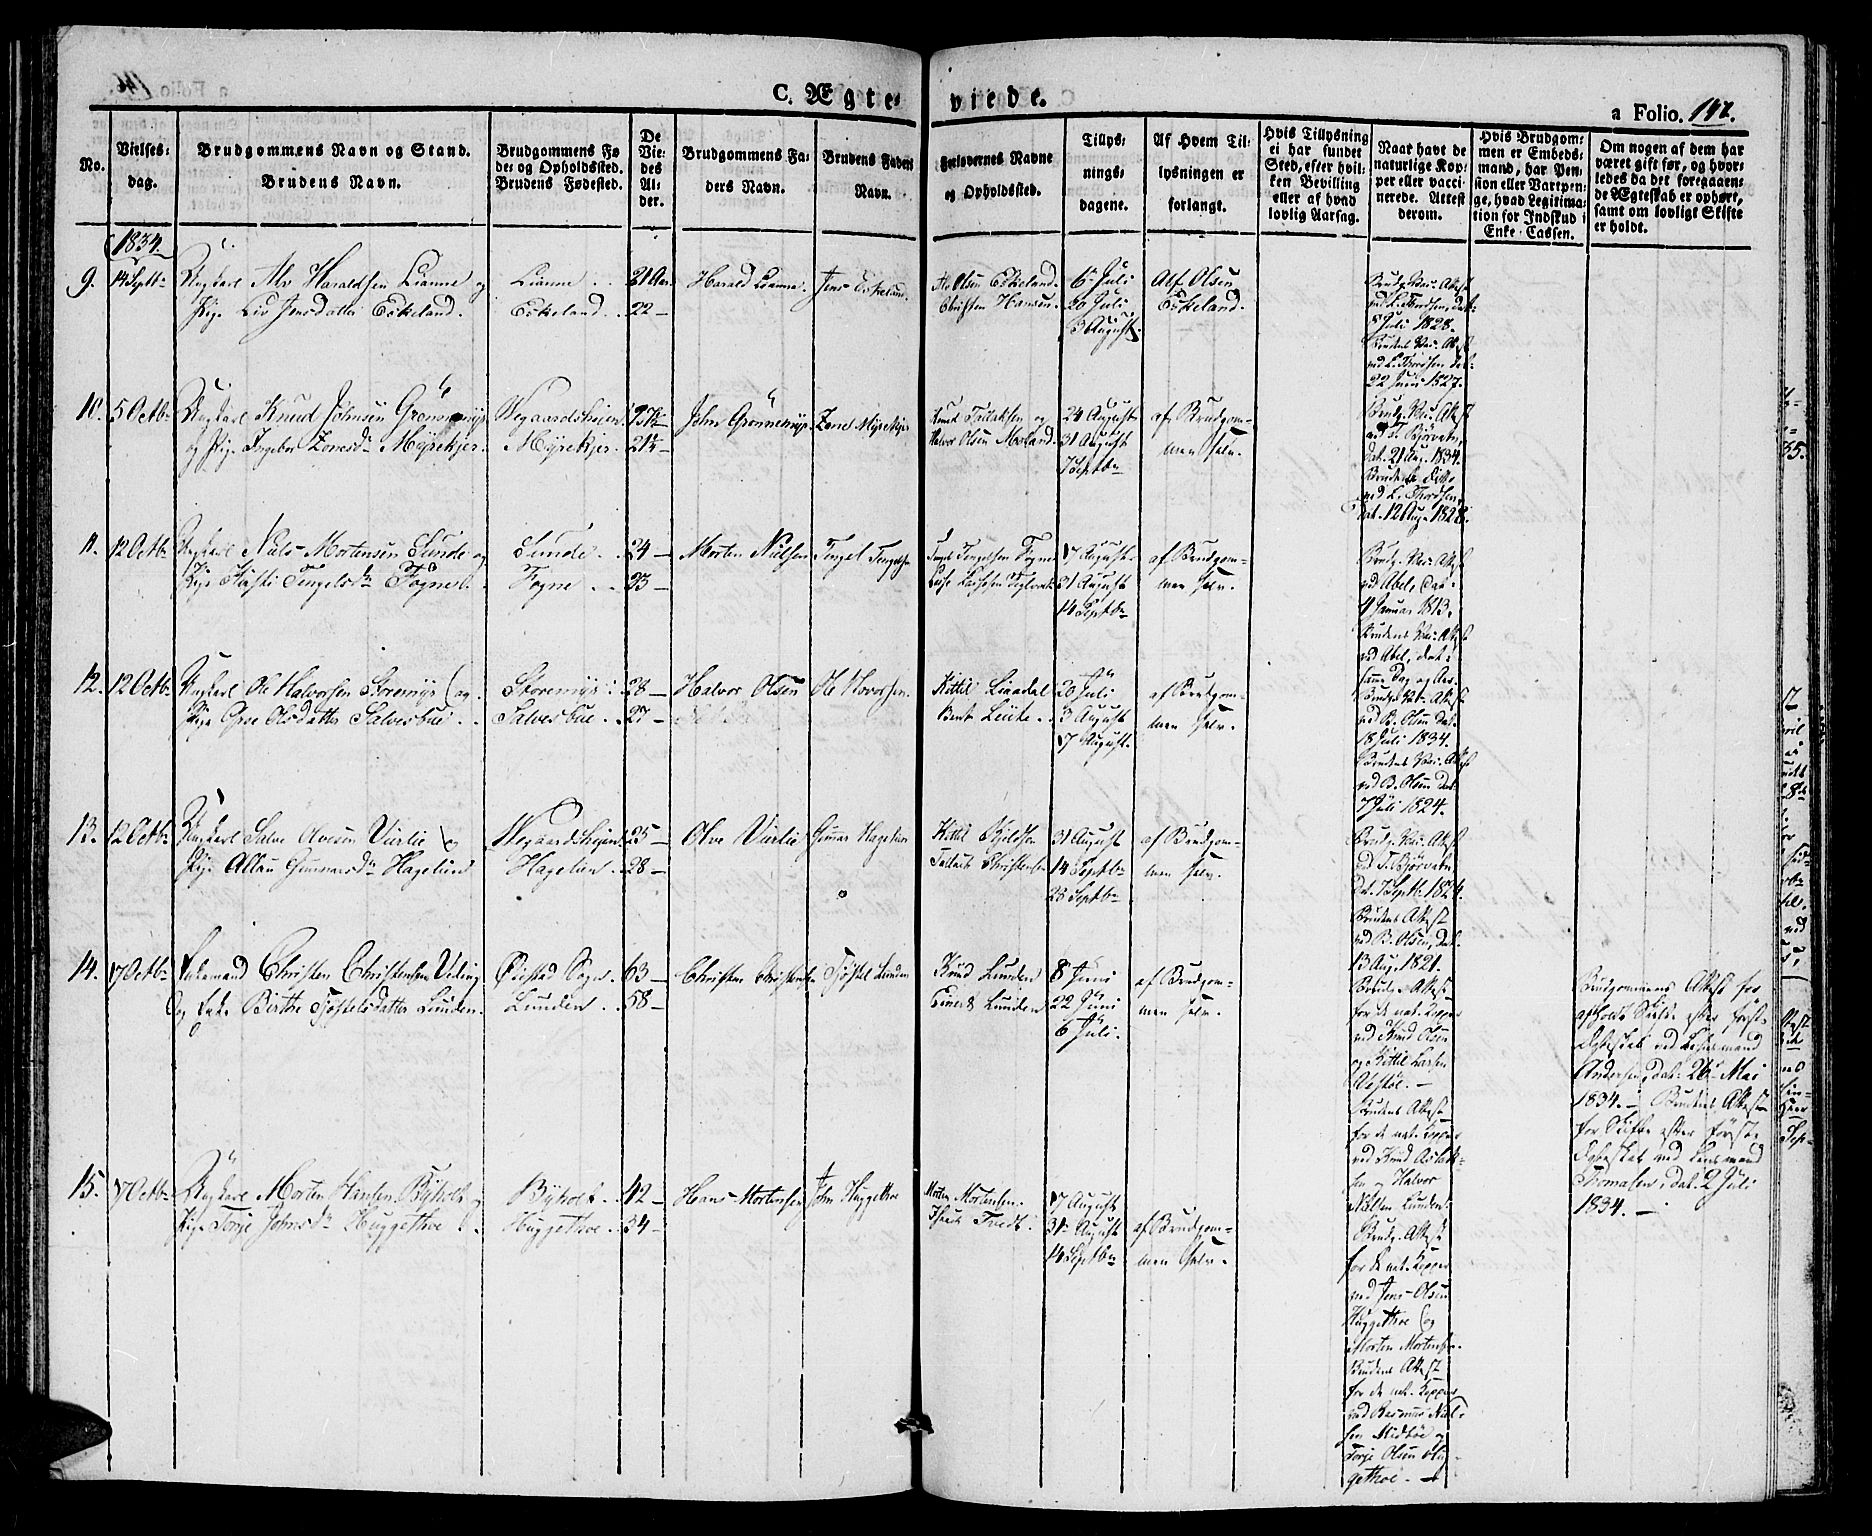 C. Ægte-
viede.
a Folio. 147.
No.
Vielses-
dag.
Brudgommens Navn og Stand.
Brudens Navn.
Brudgommens Fø
de- og Opholdssted.
Brudens Fødested.
De
Vie-
des
Al-
der.
Brudgommens Fa-
ders Navn.
Brudens Faders
Navn.
Forlovernes Navne
og Opholdssted.
Tillys-
nings-
dagene.
Af Hvem Til-
lysningen er
forlangt.
Hvis Tillysning
ei har fundet
Sted, efter hvil-
ken Bevilling
eller af hvad
lovlig Aarsag.
Naar havt de
naturlige Kop-
per eller vacci-
nerede. Attest
derom.
Hvis Brudgom-
men er Embeds-
mand, har Pen-
sion eller Vartpen-
ge, hvad Legitima-
tion for Indskud i
Enke-Cassen.
Om nogen af dem har
været gift før, og hvor-
ledes da det foregaaen-
de Ægteskab er ophørt,
samt om lovligt Skifte
er holdt.
1834.
9. 14 Septbr Ungkarl Alv Haraldsen Lianne og
Pige Liv Jensdatter Eskeland.
Lianne
Eskeland.
21 Aar.
22 —
Harald Lianne.
Jens Eskeland.
Alv Olsen Eskeland.
Christen Hansen.
6 Juli
20 Juli
3 August.
Alf Olsen
Eskeland.
Brudg. Vac. Attest
ved L. Thordsen, dat.
Juli 1828.
Brudens Vac. Attest
ved L. Thordsen dat.
22 Juni 1827.
10. 5 Octbr Ungkarl Knud Johnsen Grønnemyr
og Pige Ingebor Zonesdr Myrekjer.
Wegaardsheien
Myrekjer.
21½ —
John Grønnemyr.
Zones Myrekjer
Knud Tallaksen og
Halvor Olsen Moland.
24 August
31 August
7 Septbr
af Brudgom-
men selv.
Brudg. Vac. Attest
ved T. Bjørvatn,
dat. 21 Aug. 1834.
Brudens Ditto
ved L. Thordsen,
dat. 12 Aug. 1828.
11. 12 Octbr Ungkarl Niels Mortensen Sunde og
Pige Tengelsdr Fogne.
Sunde
Fogne
24 —
23 —
Morten Nielsen
Tengel Tengelsen
Tengelsen Fogne
17 August.
31 August
14 Septbr
af Brudgom-
men selv.
Brudg. Vac. Attest
ved Abel, dat.
4 Januar 1813.
Brudens Vac. Attest
ved Abel, dat.
samme Dag og Aar.
12. 12 Octbr Ungkarl Ole Halvorsen Storemyr og
Pige Groe Olsdatter Salvesbue.
Storemyr
Salvesbue
28 —
27 —
Halvor Olsen
Ole Hovorsen.
Kittil Liaadal
Bent Leite.
20 Juli
3 August
17 August.
af Brudgom-
men selv.
Brudg. Vac. Attest
ved B. Olsen dat.
18 Juli 1834.
Brudens Vac. Attest
ved B. Olsen dat.
7 Juli 1824.
13. 12 Octbr Ungkarl Salve Olvesen Vierlie og
Pige Allau Gunnarsdr Hagelien
Wegaardsheien
Hagelien.
25 —
28 —
Olve Vierlie
Gunnar Hagelien
Kittil Kjeldsen
Tallack Christensen
31 August
14 Septbr
28 Septbr
af Brudgom-
men selv.
Brudg. Vac. Attest
ved T. Bjørvatn
dat. 7 Septb. 1824.
Brudens Attest
ved B. Olsen, dat.
13 Aug. 1821.
14. 17 Octbr Enkemand Christen Christensen Veding
og Enke Birthe Tjøstelsdatter Lunden.
Øiestad Sogn.
Lunden.
63 —
58 —
Christen Christensen
Tjøstel Lunden
Knud Lunden
Einert Lunden
8 Juni
22 Juni
6 Juli.
af Brudgom-
men selv.
Brudg. Attest
for de nat. Kopper
ved Knud Olsen
og Kittil Larsen
Vestøl. —
Brudens Attest
for de nat. Kopper
ved Knud Aslak-
sen og Halvor
Nielsen Lunden.
Brudgommens Attest for
afholdt Skifte efter første
Ægteskab ved Lensmand
Andersen, dat. 26 Mai
1834. — Brudens Attest
for Skifte efter første
Ægteskab ved Lensmand
Thomasen, dat. 2 Juli
1834. —
15. 17 Octbr Ungkarl Morten Hansen Byholt og
Pige Torje Johnsdr Huggethoe
Byholt.
Huggethoe.
42 —
34 —
Hans Mortensen
John Huggethoe
Morten Mortensen.
17 August
31 August
14 Septbr
af Brudgom-
men selv.
Brudg. Attest
for de nat. Kopper
ved Jens Olsen
Huggethoe og
Morten Mortensen.
Brudens Attest
for de nat. Kopper
ved Rasmus Niel-
sen Midbøe og
Torje Olsen Hug-
gethoe. —